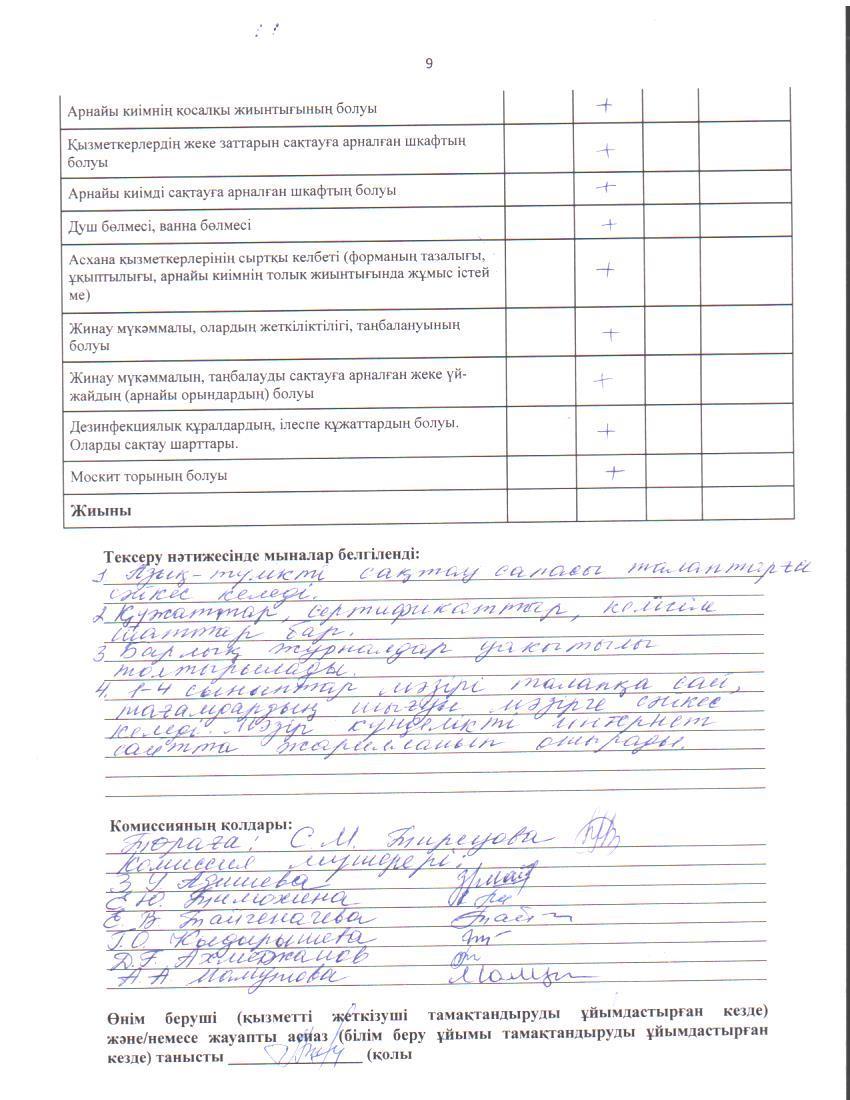 9
Арнайы киімнің қосалқы жиынтығының болуы +
Қызметкерлердің жеке заттарын сақтауға арналған шкафтың
болуы +
Арнайы киімді сақтауға арналған шкафтың болуы +
Душ бөлмесі, ванна бөлмесі +
Асхана қызметкерлерінің сыртқы келбеті (форманың тазалығы,
ұқыптылығы, арнайы киімнің толык жиынтығында жұмыс істей
ме) +
Жинау мүкәммалы, олардың жеткіліктілігі, таңбалануының
болуы +
Жинау мүкәммалын, таңбалауды сақтауға арналған жеке үй-
жайдың (арнайы орындардың) болуы +
Дезинфекциялық құралдардың, ілеспе құжаттардың болуы.
Оларды сақтау шарттары. +
Москит торының болуы +
Жиыны
Тексеру нәтижесінде мыналар белгіленді:
1. Азық-түлікті сақтау сапасы талаптарға
сәйкес келеді.
2. Құжаттар, сертификаттар, келісім
шаттар бар.
3. Барлық журналдар уақытылы
толтырылады.
4. 1-4 сыныптар мәзірі талапқа сай,
тағамдардың шығуы мәзірге сәйкес
келеді. Мәзір күнделікті интернет
сайтта жарияланып отырады.
Комиссияның қолдары:
Төраға: С.М.
Комиссия мүшелері:
З.У.
Е.Ю. Тимохина
Е.В.
Г.О.
Д.Г. Ахметжанов
А.А. Мамутова
Өнім беруші (қызметті жеткізуші тамақтандыруды ұйымдастырған кезде)
және/немесе жауапты аспаз (білім беру ұйымы тамақтандыруды ұйымдастырған
кезде) танысты (қолы